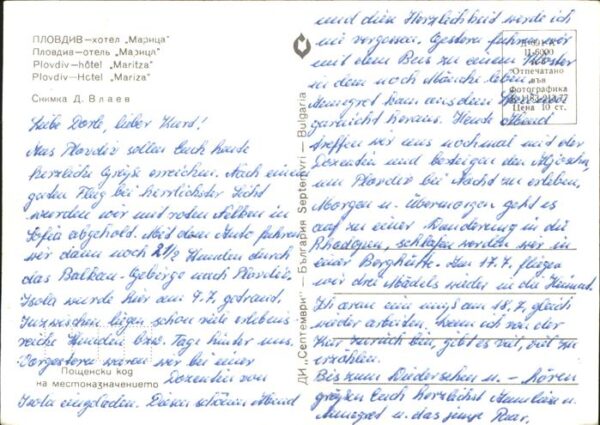 ПЛОВДИВ—хотел „Марица"
Пловдив—отель „Марица"
Plovdiv—hôtel "Maritza"
Plovdiv—Hotel "Mariza"
Снимка Д. Влаев
Liebe Dorle, lieber Kurt!
Aus Plovdiv sollen Euch heute
herzliche Grüße erreichen. Nach einem
guten Flug bei herrlichster Sicht
wurden wir mit roten Nelken in
Sofia abgeholt. Mit dem Auto fuhren
wir dann noch 2 1/2 Stunden durch
das Balkan-Gebirge nach Plovdiv.
Isola wurde hier am 9.7. getraut.
Inzwischen liegen schon viele erlebnis
reiche Stunden bzw. Tage hinter uns.
Vorgestern waren wir bei einer
Dozentin von
Isola eingeladen. Diesen schönen Abend
Пощенски код
на местоназначението
ДИ „Септември" — България Septemvri — Bulgaria
und diese Herzlichkeit werde ich
nie vergessen. Gestern fuhren wir
mit dem Bus zu einem Kloster
in dem noch Mönche leben.
Annegret kam aus dem
garnicht heraus. Heute Abend
treffen wir uns nochmal mit der
Dozentin und besteigen den
um Plovdiv bei Nacht zu erleben.
Morgen u. übermorgen geht es
auf zu einer Wanderung in die
Rhodopen, schlafen werden wir in
einer Berghütte. Am 17.7. fliegen
wir drei Mädels wieder in die Heimat.
Ich arme muß am 18.7. gleich
wieder arbeiten. Wenn ich von der
Kur zurück bin, gibt es viel, viel zu
erzählen.
Bis zum Wiedersehen u. — hören
grüßen Euch herzlichst Annelise u.
Annegret u. das junge Paar.
Отпечатано
във
Фотографика
Цена 10 ст.